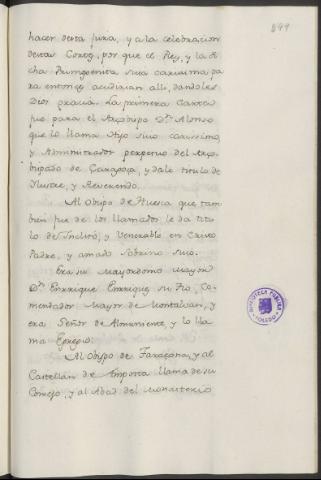 899
hacer desta jura, y a la celebracion
destas Cortes, por que el Rey, y la di
cha Primogenita suia carissima pa
ra entonces acudirian alli, dandoles
Dios gracia. La primera Carta
fue para el Arzobispo Dn. Alonso
que lo llama Hijo suio carissimo
y Administrador perpetuo del Arzo
bispado de Zaragoza, y dale titulo de
Ilustre, y Reverendo.
Al Obispo de Huesca que tam
bien fue de los llamados le da titu
lo de Inclito, y Venerable en Cristo
Padre, y amado Sobrino suio.
Era su Mayordomo mayor
Dn. Enrrique Enrriquez su Tio, Co
mendador Mayor de Montalvan, y
era Señor de Almuniente, y lo lla
ma Egregio:
Al Obispo de Tarazona, y al
Castellan de Amposta llama de su
Consejo, y al Abad del Monasterio
BIBLIOTECA PUBLICA
TOLEDO